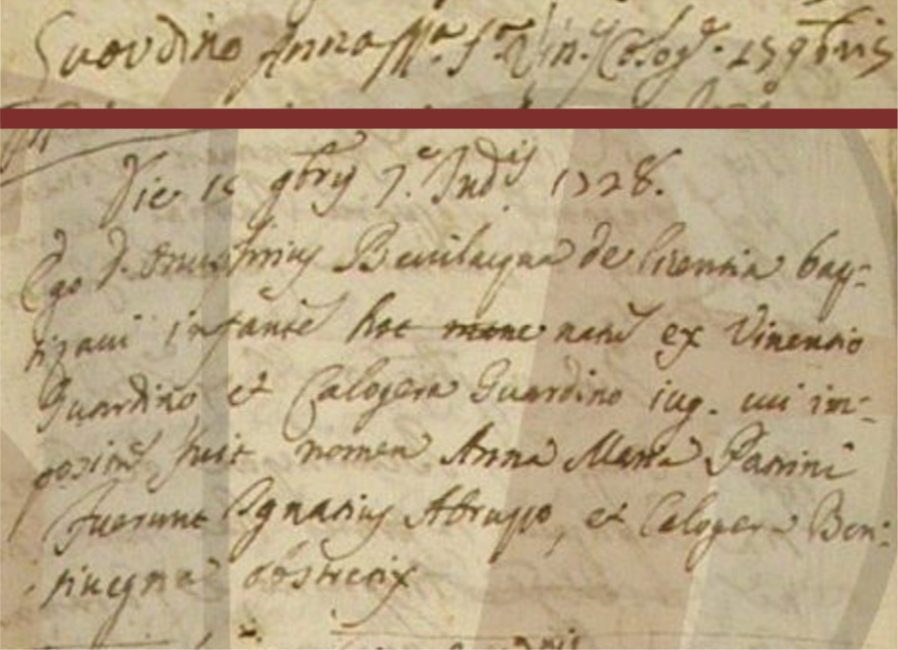 Guardino Anna Mª. fª. di Vin.º e Calogª. 15 9bris
Die 15 9bris 7.e Ind.is 1728.
Ego D. Bevilaqua de licentia bap-
tizavi infante hoc mane natu ex Vinensio
Guardino et Calogera Guardino iug. cui im-
positu fuit nomen Anna Maria Patrini
fuerunt Ignatius Abruzzo, et Calogera Bon-
sinegna obstetrix